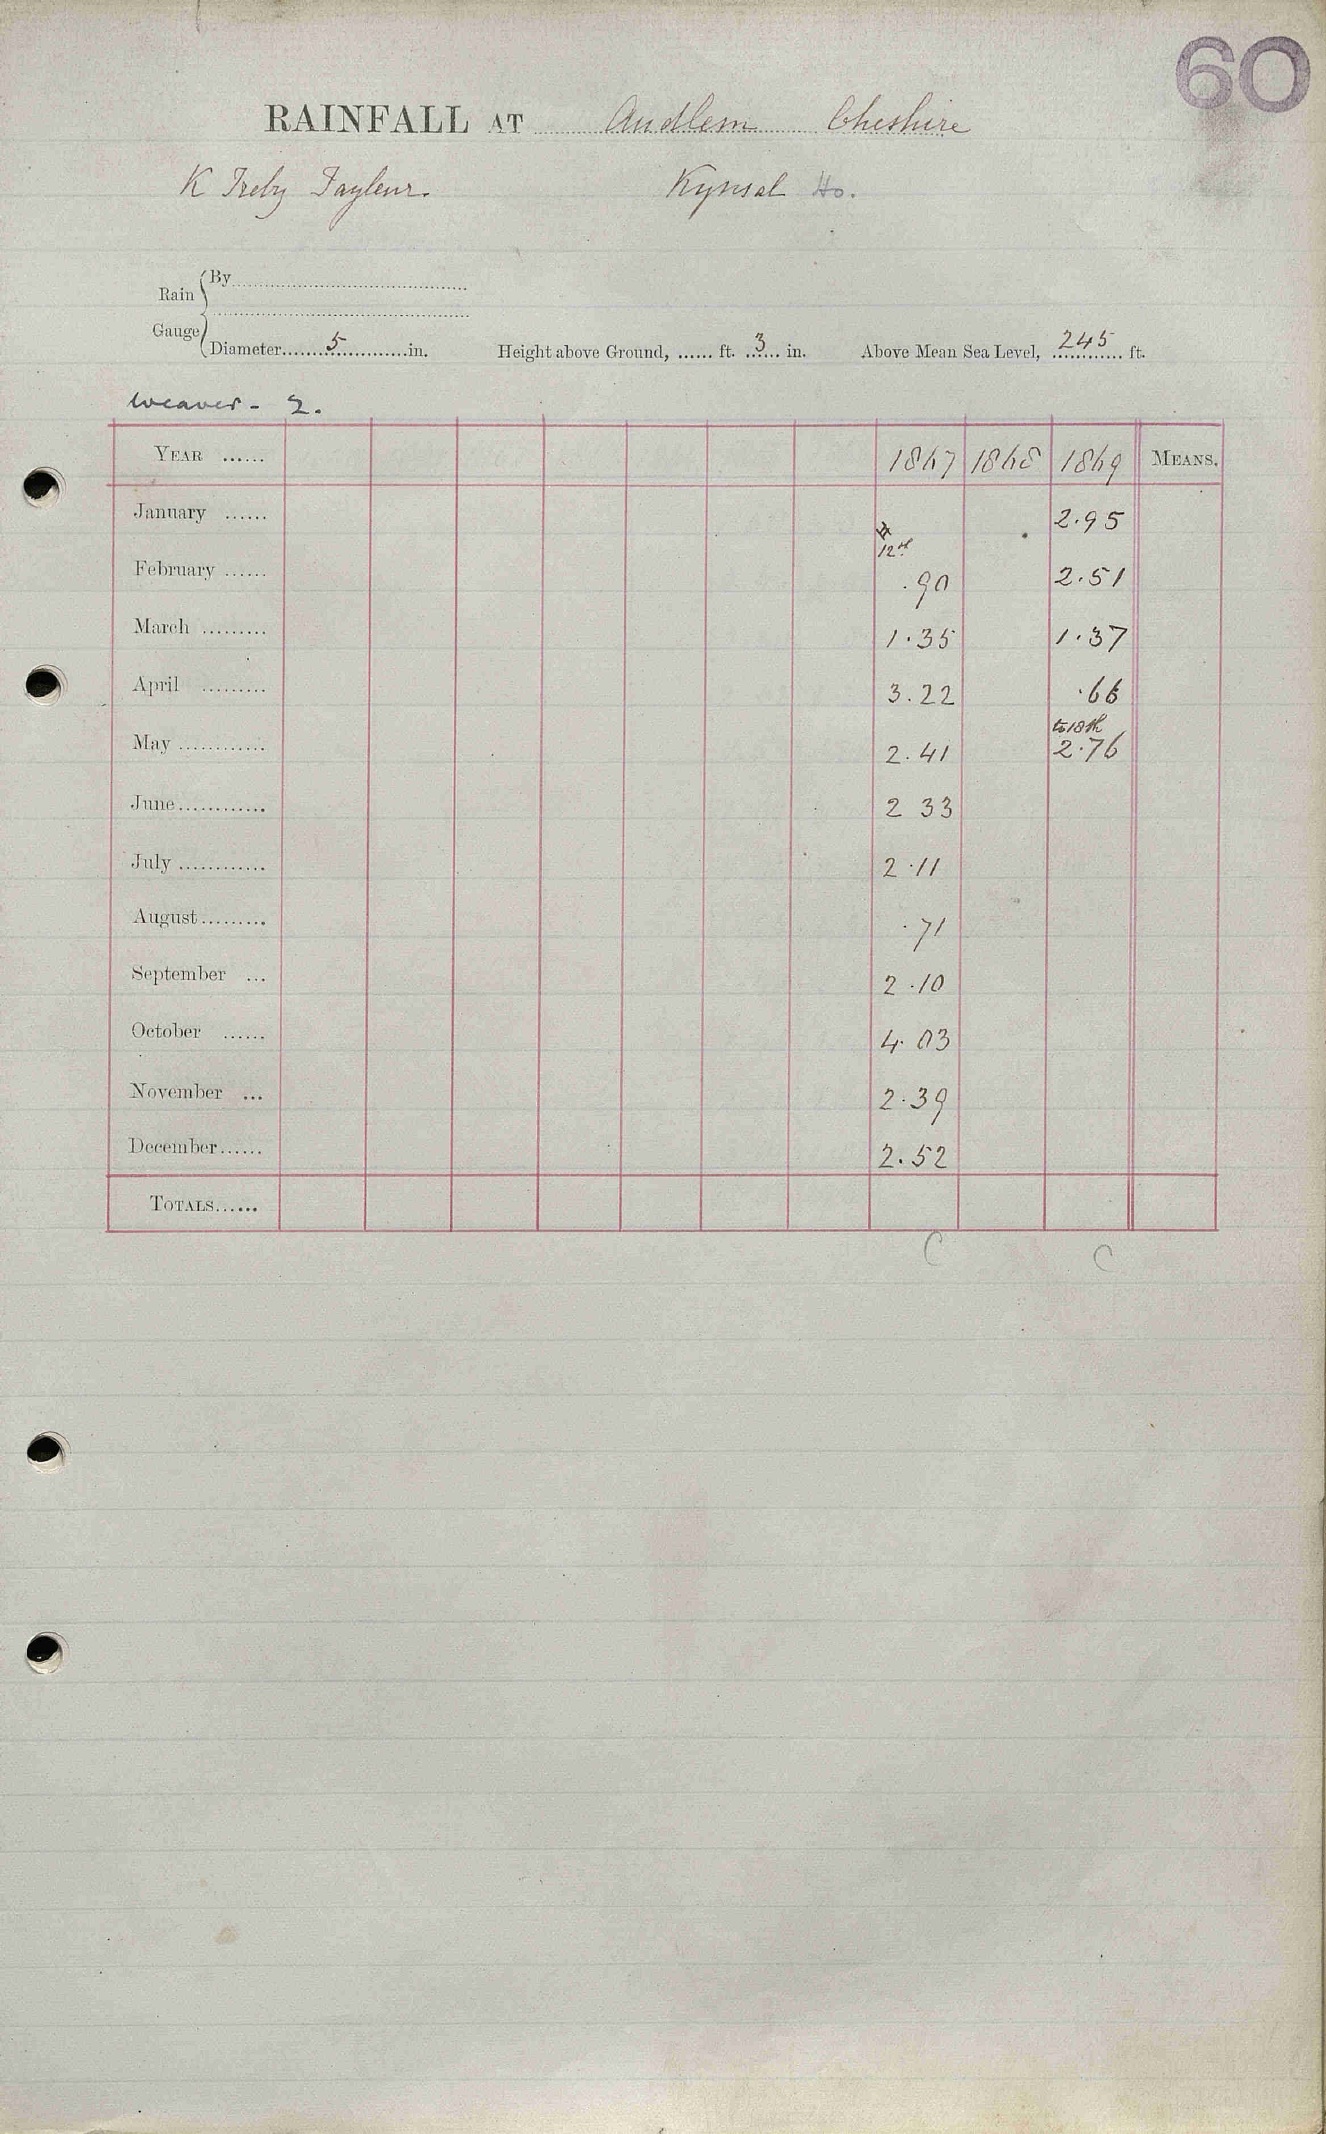 60
RAINFALL AT Audlem Cheshire
K Treby Tayleur. Kynsal Ho.
Rain Gauge
By
Diameter 5 in. Height above Ground, ...... ft. 3 in. Above Mean Sea Level, 245 ft.
Weaver - 2.
YEAR ...... 1867 1868 1869 MEANS.
January ...... 2.95
12th
February ...... .90 2.51
March ......... 1.35 1.37
April ......... 3.22 .66
to 18th
May ............ 2.41 2.76
June............ 2 33
July ............ 2.11
August......... .71
September ... 2.10
October ...... 4.03
November ... 2.39
December...... 2.52
TOTALS......
C C